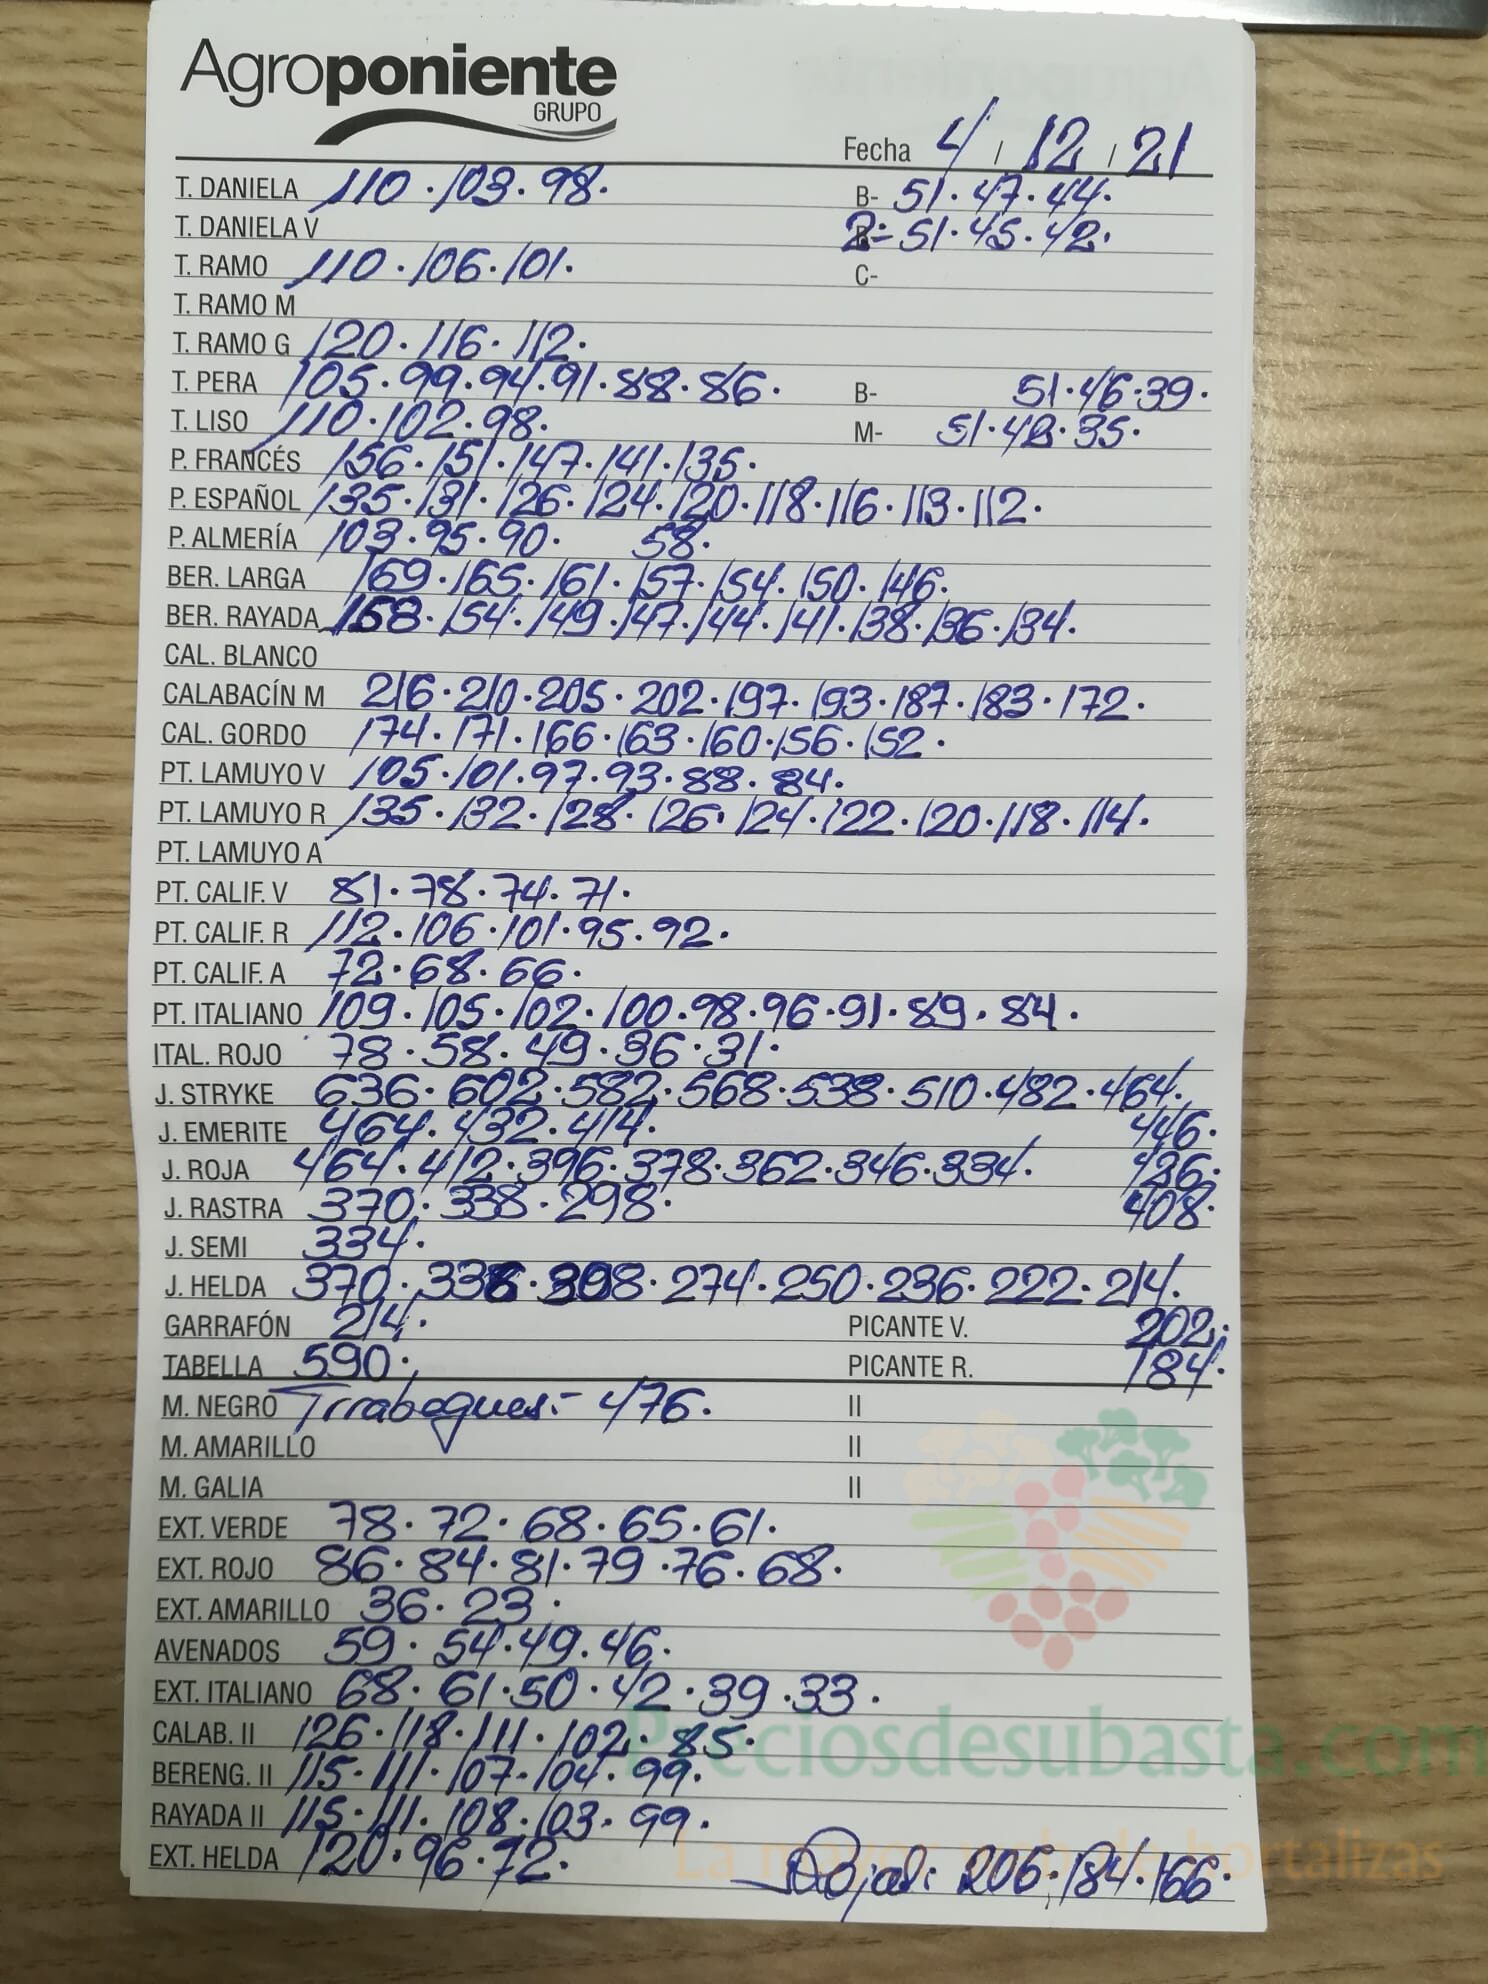 Agroponiente
GRUPO
Fecha 4 / 12 / 21
T. DANIELA 110 · 103 · 98. B- 51 · 47 · 44.
T. DANIELA V 2= 51 · 45 · 42.
T. RAMO 110 · 106 · 101. C-
T. RAMO M
T. RAMO G 120 · 116 · 112.
T. PERA 105 · 99 · 94 · 91 · 88 · 86. B- 51 · 46 · 39.
T. LISO 110 · 102 · 98. M- 51 · 42 · 35.
P. FRANCÉS 156 · 151 · 147 · 141 · 135.
P. ESPAÑOL 135 · 131 · 126 · 124 · 120 · 118 · 116 · 113 · 112.
P. ALMERÍA 103 · 95 · 90. 58.
BER. LARGA 169 · 165 · 161 · 157 · 154 · 150 · 146.
BER. RAYADA 158 · 154 · 149 · 147 · 144 · 141 · 138 · 136 · 134.
CAL. BLANCO
CALABACÍN M 216 · 210 · 205 · 202 · 197 · 193 · 187 · 183 · 172.
CAL. GORDO 174 · 171 · 166 · 163 · 160 · 156 · 152.
PT. LAMUYO V 105 · 101 · 97 · 93 · 88 · 84.
PT. LAMUYO R 135 · 132 · 128 · 126 · 124 · 122 · 120 · 118 · 114.
PT. LAMUYO A
PT. CALIF. V 81 · 78 · 74 · 71.
PT. CALIF. R 112 · 106 · 101 · 95 · 92.
PT. CALIF. A 72 · 68 · 66.
PT. ITALIANO 109 · 105 · 102 · 100 · 98 · 96 · 91 · 89 · 84.
ITAL. ROJO 78 · 58 · 49 · 36 · 31.
J. STRYKE 636 · 602 · 582 · 568 · 538 · 510 · 482 · 464.
J. EMERITE 464 · 432 · 414. 446.
J. ROJA 464 · 412 · 396 · 378 · 362 · 346 · 334. 426.
J. RASTRA 370 · 338 · 298. 408.
J. SEMI 334.
J. HELDA 370 · 336 · 308 · 274 · 250 · 236 · 222 · 214.
GARRAFÓN 214. PICANTE V. 202.
TABELLA 590. PICANTE R. 184.
M. NEGRO 476. II
M. AMARILLO II
M. GALIA II
EXT. VERDE 78 · 72 · 68 · 65 · 61.
EXT. ROJO 86 · 84 · 81 · 79 · 76 · 68.
EXT. AMARILLO 36 · 23.
AVENADOS 59 · 54 · 49 · 46.
EXT. ITALIANO 68 · 61 · 50 · 42 · 39 · 33.
Preciosdesubasta.com
CALAB. II 126 · 118 · 111 · 102 · 85.
BERENG. II 115 · 111 · 107 · 104 · 99.
RAYADA II 115 · 111 · 108 · 103 · 99.
La mayor web de hortalizas
EXT. HELDA 120 · 96 · 72. 206 · 184 · 166.